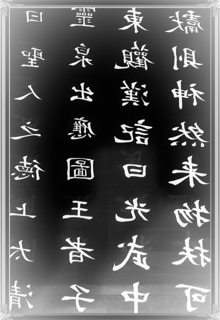 獻則神然来物扶可
東觀漢記曰光武中
靈泉出應圖王者子
曰聖人之德上太清